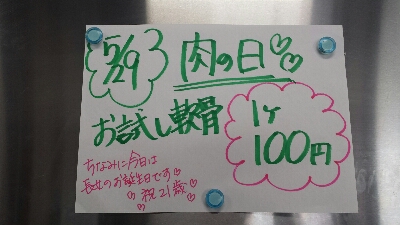 5/29
肉の日♡♡
お試し軟骨
1ヶ
100円
ちなみに今日は
長女のお誕生日です♡
♡祝21歳♡